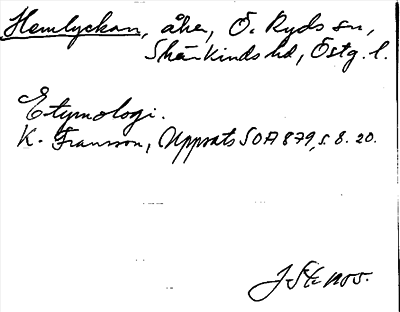 Hemlyckan, åker, Ö. Ryds sn,
Skärkinds hd, Östg. l.
Etymologi.
K. Fransson, Uppsats SOA 879, s. 8. 20.